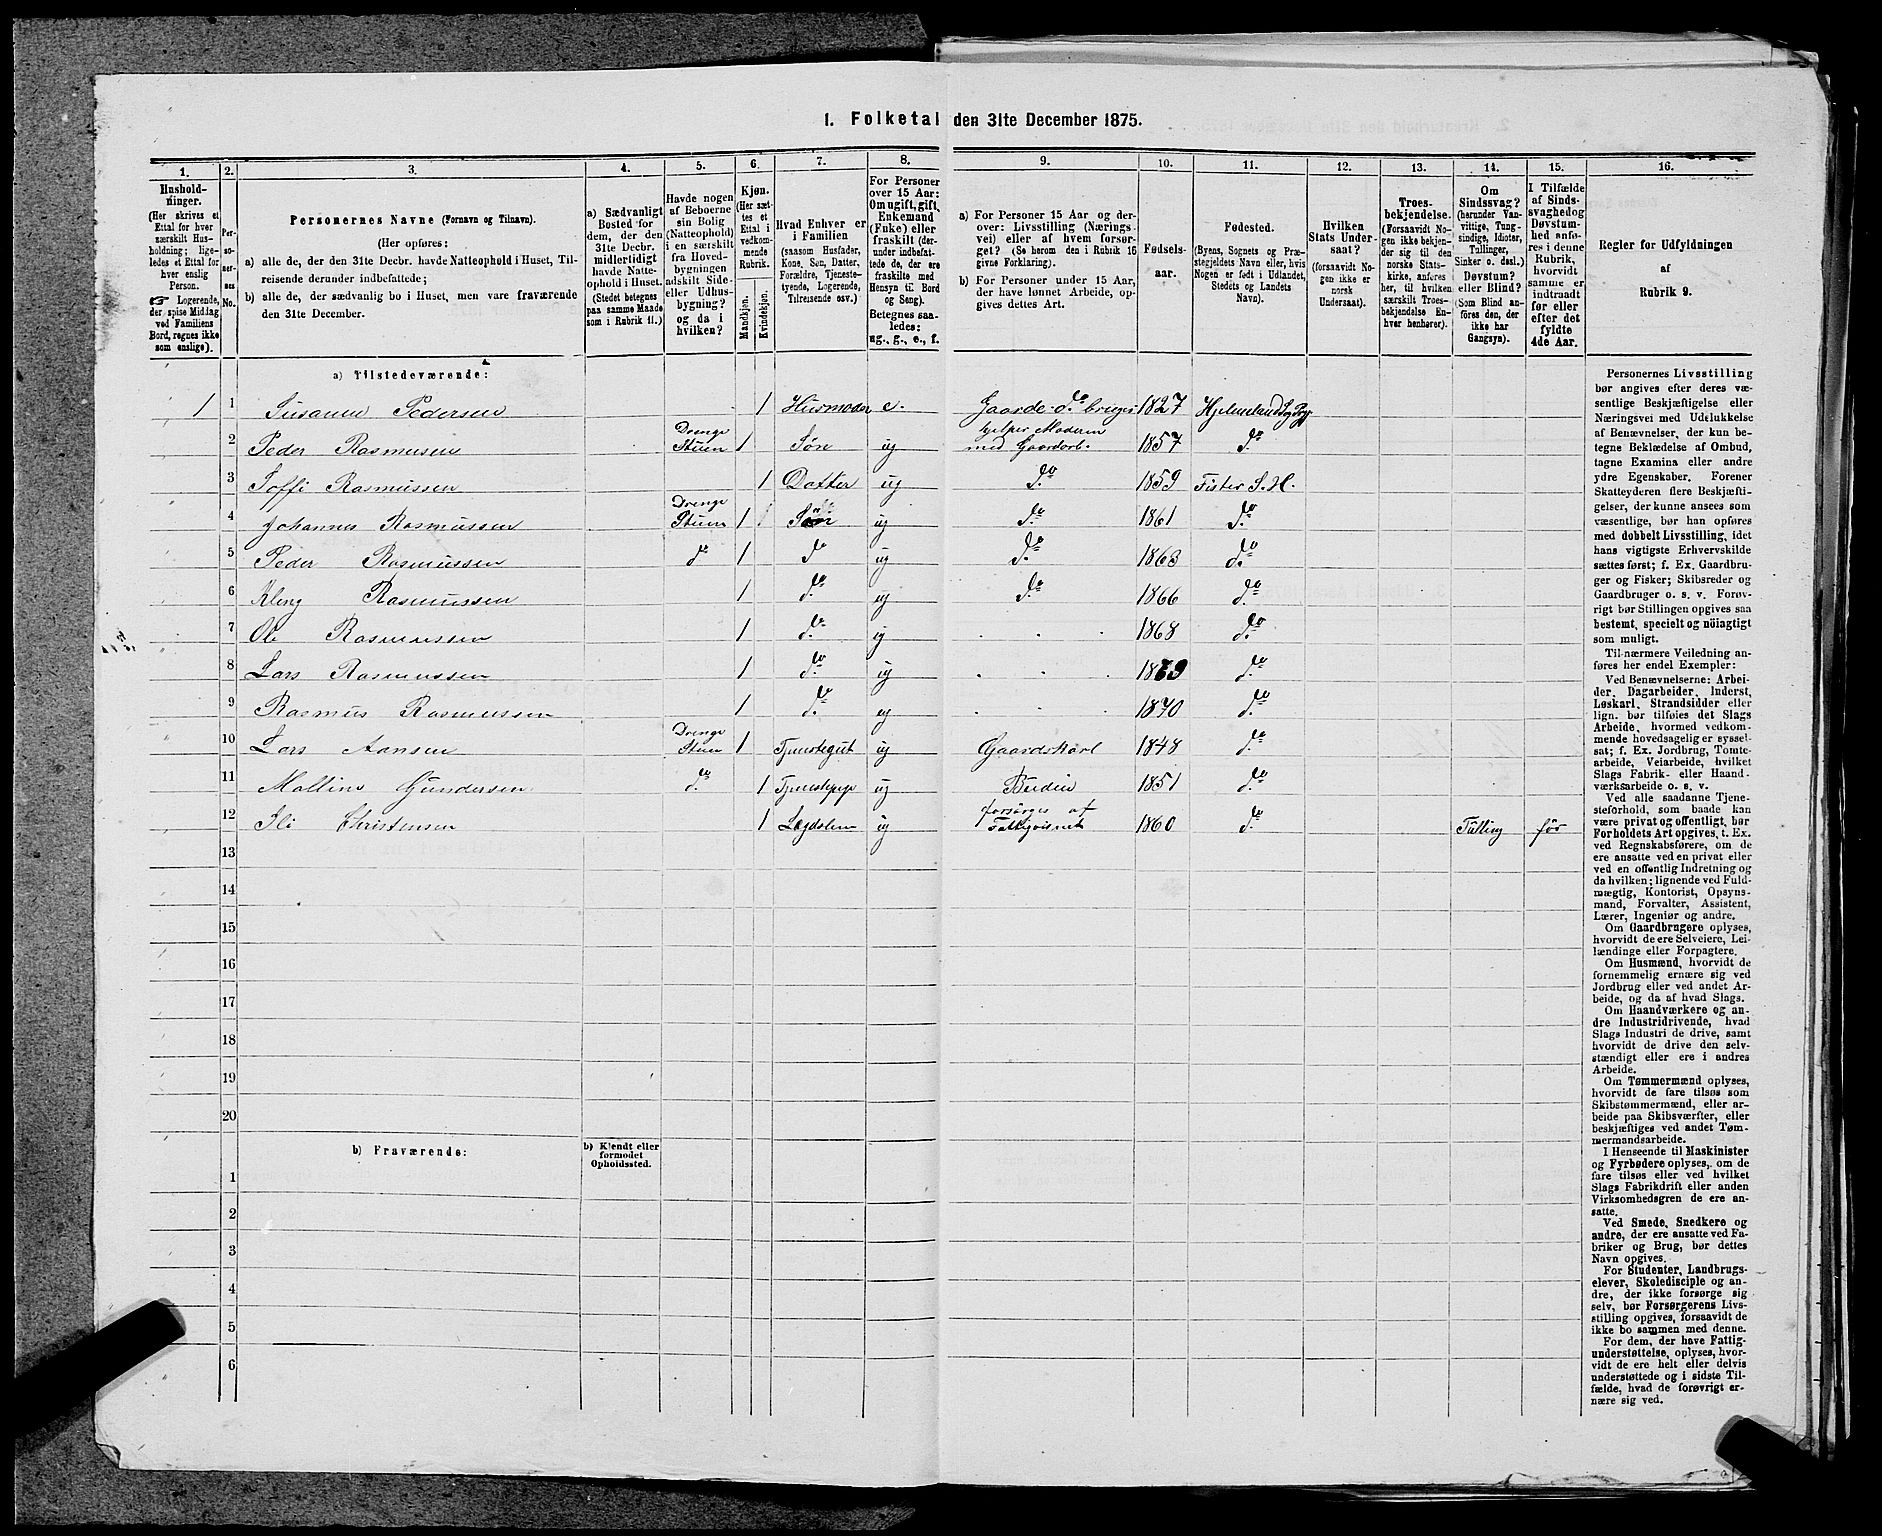 1. Folketal den 31te December 1875.
1.
2.
3.
4.
5.
6.
7.
8.
9.
10.
11.
12.
13.
14.
15.
16.
Hushold-
ninger.
(Her skrives et
Ettal for hver
særskilt Hus-
holdning; lige-
ledes et Ettal for
hver enslig
Person.
☞ Logerende,
der spise Middag
ved Familiens
Bord, regnes ikke
som enslige).
Per-
so-
ner-
nes
No.
Personernes Navne (Fornavn og Tilnavn).
(Her opføres:
a) alle de, der den 31te Decbr. havde Natteophold i Huset, Til-
reisende derunder indbefattede;
b) alle de, der sædvanlig bo i Huset, men vare fraværende
den 31te December.
a) Sædvanligt
Bosted for
dem, der den
31te Decbr.
midlertidigt
havde Natte-
ophold i Huset.
(Stedet betegnes
paa samme Maade
som i Rubrik 11.)
Havde nogen
af Beboerne
sin Bolig
(Natteophold)
i en særskilt
fra Hoved-
bygningen
adskilt Side-
eller Udhus-
bygning?
og da i
hvilken?
Kjøn.
(Her sæt-
tes et
Ettal i
vedkom-
mende
Rubrik.
Mandkjøn.
Kvindekjøn.
Hvad Enhver er
i Familien
(saasom Husfader,
Kone, Søn, Datter,
Forældre, Tjeneste-
tyende, Logerende,
Tilreisende osv.)
For Personer
over 15 Aar:
Om ugift, gift,
Enkemand
(Enke) eller
fraskilt (der-
under indbefat-
tede de, der ere
fraskilte med
Hensyn til Bord
og Seng).
Betegnes saa-
ledes:
ug., g., e., f.
a) For Personer 15 Aar og der-
over: Livsstilling (Nærings-
vei) eller af hvem forsør-
get? (Se herom den i Rubrik 16
givne Forklaring).
b) For Personer under 15 Aar,
der have lønnet Arbeide, op-
gives dettes Art.
Fødsels-
aar.
Fødested.
(Byens, Sognets og Præ-
stegjeldets Navn eller, hvis
Nogen er født i Udlandet,
Stedets og Landets
Navn).
Hvilken
Stats Under-
saat?
(forsaavidt No-
gen ikke er
norsk
Undersaat).
Troes-
bekjendelse.
(Forsaavidt No-
gen ikke bekjen-
der sig til den
norske Stats-
kirke, anføres
her, til hvilken
særskilt Troes-
bekjendelse En-
hver henhører).
Om
Sindssvag?
(herunder Van-
vittige, Tung-
sindige, Idioter,
Tullinger,
Sinker o. desl.)
Døvstum?
eller Blind?
(Som Blind an-
føres den, der
ikke har
Gangsyn).
I Tilfælde
af Sinds-
svaghed og
Døvstum-
hed anfø-
res i denne
Rubrik,
hvorvidt
samme er
indtraadt
før eller
efter det
fyldte
4de Aar.
Regler for Udfyldningen
af
Rubrik 9.
a) Tilstedeværende:
1 1 Susanne Pedersen 1 Husmoder e. Gaarde 1827
2 Peder Rasmusen Drenge Stuen 1 Søn ug hjelper Moderen med Gaardarb. 1857 do
3 Soffi Rasmussen 1 Datter ug do 1859 Fister S. H.
4 Johannes Rasmussen Drenge Stuen 1 Søn ug do 1861 do
5 Peder Rasmussen do 1 do ug do 1863 do
6 Kling Rasmussen 1 do ug do 1866 do
7 Ole Rasmussen 1 do ug 1868 do
8 Lars Rasmussen 1 do ug do
9 Rasmus Rasmussen 1 do ug 1870 do
10 Lars Aansen Drenge Stuen 1 Tjenestegut ug Gaardskarl 1848 do
11 Malline Gundersen do 1 Tjenestepige ug Budeie 1851 do
12 Ili Christensen 1 Lægdslem ug forsørges af Fattigvæsnet 1860 do Tulling før
13
14
15
16
17
18
19
20
b) Fraværende:
b) Kjendt eller
formodet
Opholdssted.
1
2
3
4
5
6
Personernes Livsstilling
bør angives efter deres væ-
sentlige Beskjæftigelse eller
Næringsvei med Udelukkelse
af Benævnelser, der kun be-
tegne Beklædelse af Ombud,
tagne Examina eller andre
ydre Egenskaber. Forener
Skatteyderen flere Beskjæfti-
gelser, der kunne ansees som
væsentlige, bør han opføres
med dobbelt Livsstilling, idet
hans vigtigste Erhvervskilde
sættes først; f. Ex. Gaardbru-
ger og Fisker; Skibsreder og
Gaardbruger o. s. v. Forøv-
rigt bør Stillingen opgives saa
bestemt, specielt og nöiagtigt
som muligt.
Til nærmere Veiledning an-
føres her endel Exempler:
Ved Benævnelserne: Arbei-
der, Dagarbeider, Inderst,
Løskarl, Strandsidder eller
lign. bør tilføies det Slags
Arbeide, hvormed vedkom-
mende hovedsagelig er syssel-
sat; f. Ex. Jordbrug, Tomte-
arbeide, Veiarbeide, hvilket
Slags Fabrik- eller Haand-
værksarbeide o. s. v.
Ved alle saadanne Tjene-
steforhold, som baade kan
være privat og offentligt, bør
Forholdets Art opgives, t. Ex.
ved Regnskabsførere, om de
ere ansatte ved en privat eller
ved en offentlig Indretning og
da hvilken; lignende ved Fuld-
mægtig, Kontorist, Opsyns-
mand, Forvalter, Assistent,
Lærer, Ingeniør og andre.
Om Gaardbrugere oplyses,
hvorvidt de ere Selveiere, Lei-
lændinge eller Forpagtere.
Om Husmænd, hvorvidt de
fornemmelig ernære sig ved
Jordbrug eller ved andet Ar-
beide, og da af hvad Slags.
Om Haandværkere og an-
dre Industridrivende, hvad
Slags Industri de drive, samt
hvorvidt de drive den selv-
stændigt eller ere i andres
Arbeide.
Om Tømmermænd oplyses,
hvorvidt de fare tilsøs som
Skibstømmermænd, eller ar-
beide paa Skibsværfter, eller
beskjæftiges ved andet Tøm-
mermandsarbeide.
I Henseende til Maskinister
og Fyrbødere oplyses, om de
fare tilsøs eller ved hvilket
Slags Fabrikdrift eller anden
Virksomhedsgren de ere an-
satte.
Ved Smede, Snedkere og
andre, der ere ansatte ved Fa-
briker og Brug, bør dettes
Navn opgives.
For Studenter, Landbrugs-
elever, Skoledisciple og an-
dre, der ikke forsørge sig
selv, bør Forsørgerens Livs-
stilling opgives, forsaavidt de
ikke bo sammen med denne.
For dem, der have Fattig-
understøttelse, oplyses, hvor-
vidt de ere helt eller delvis
understøttede og i sidste Til-
fælde, hvad de forøvrigt er-
nære sig ved.